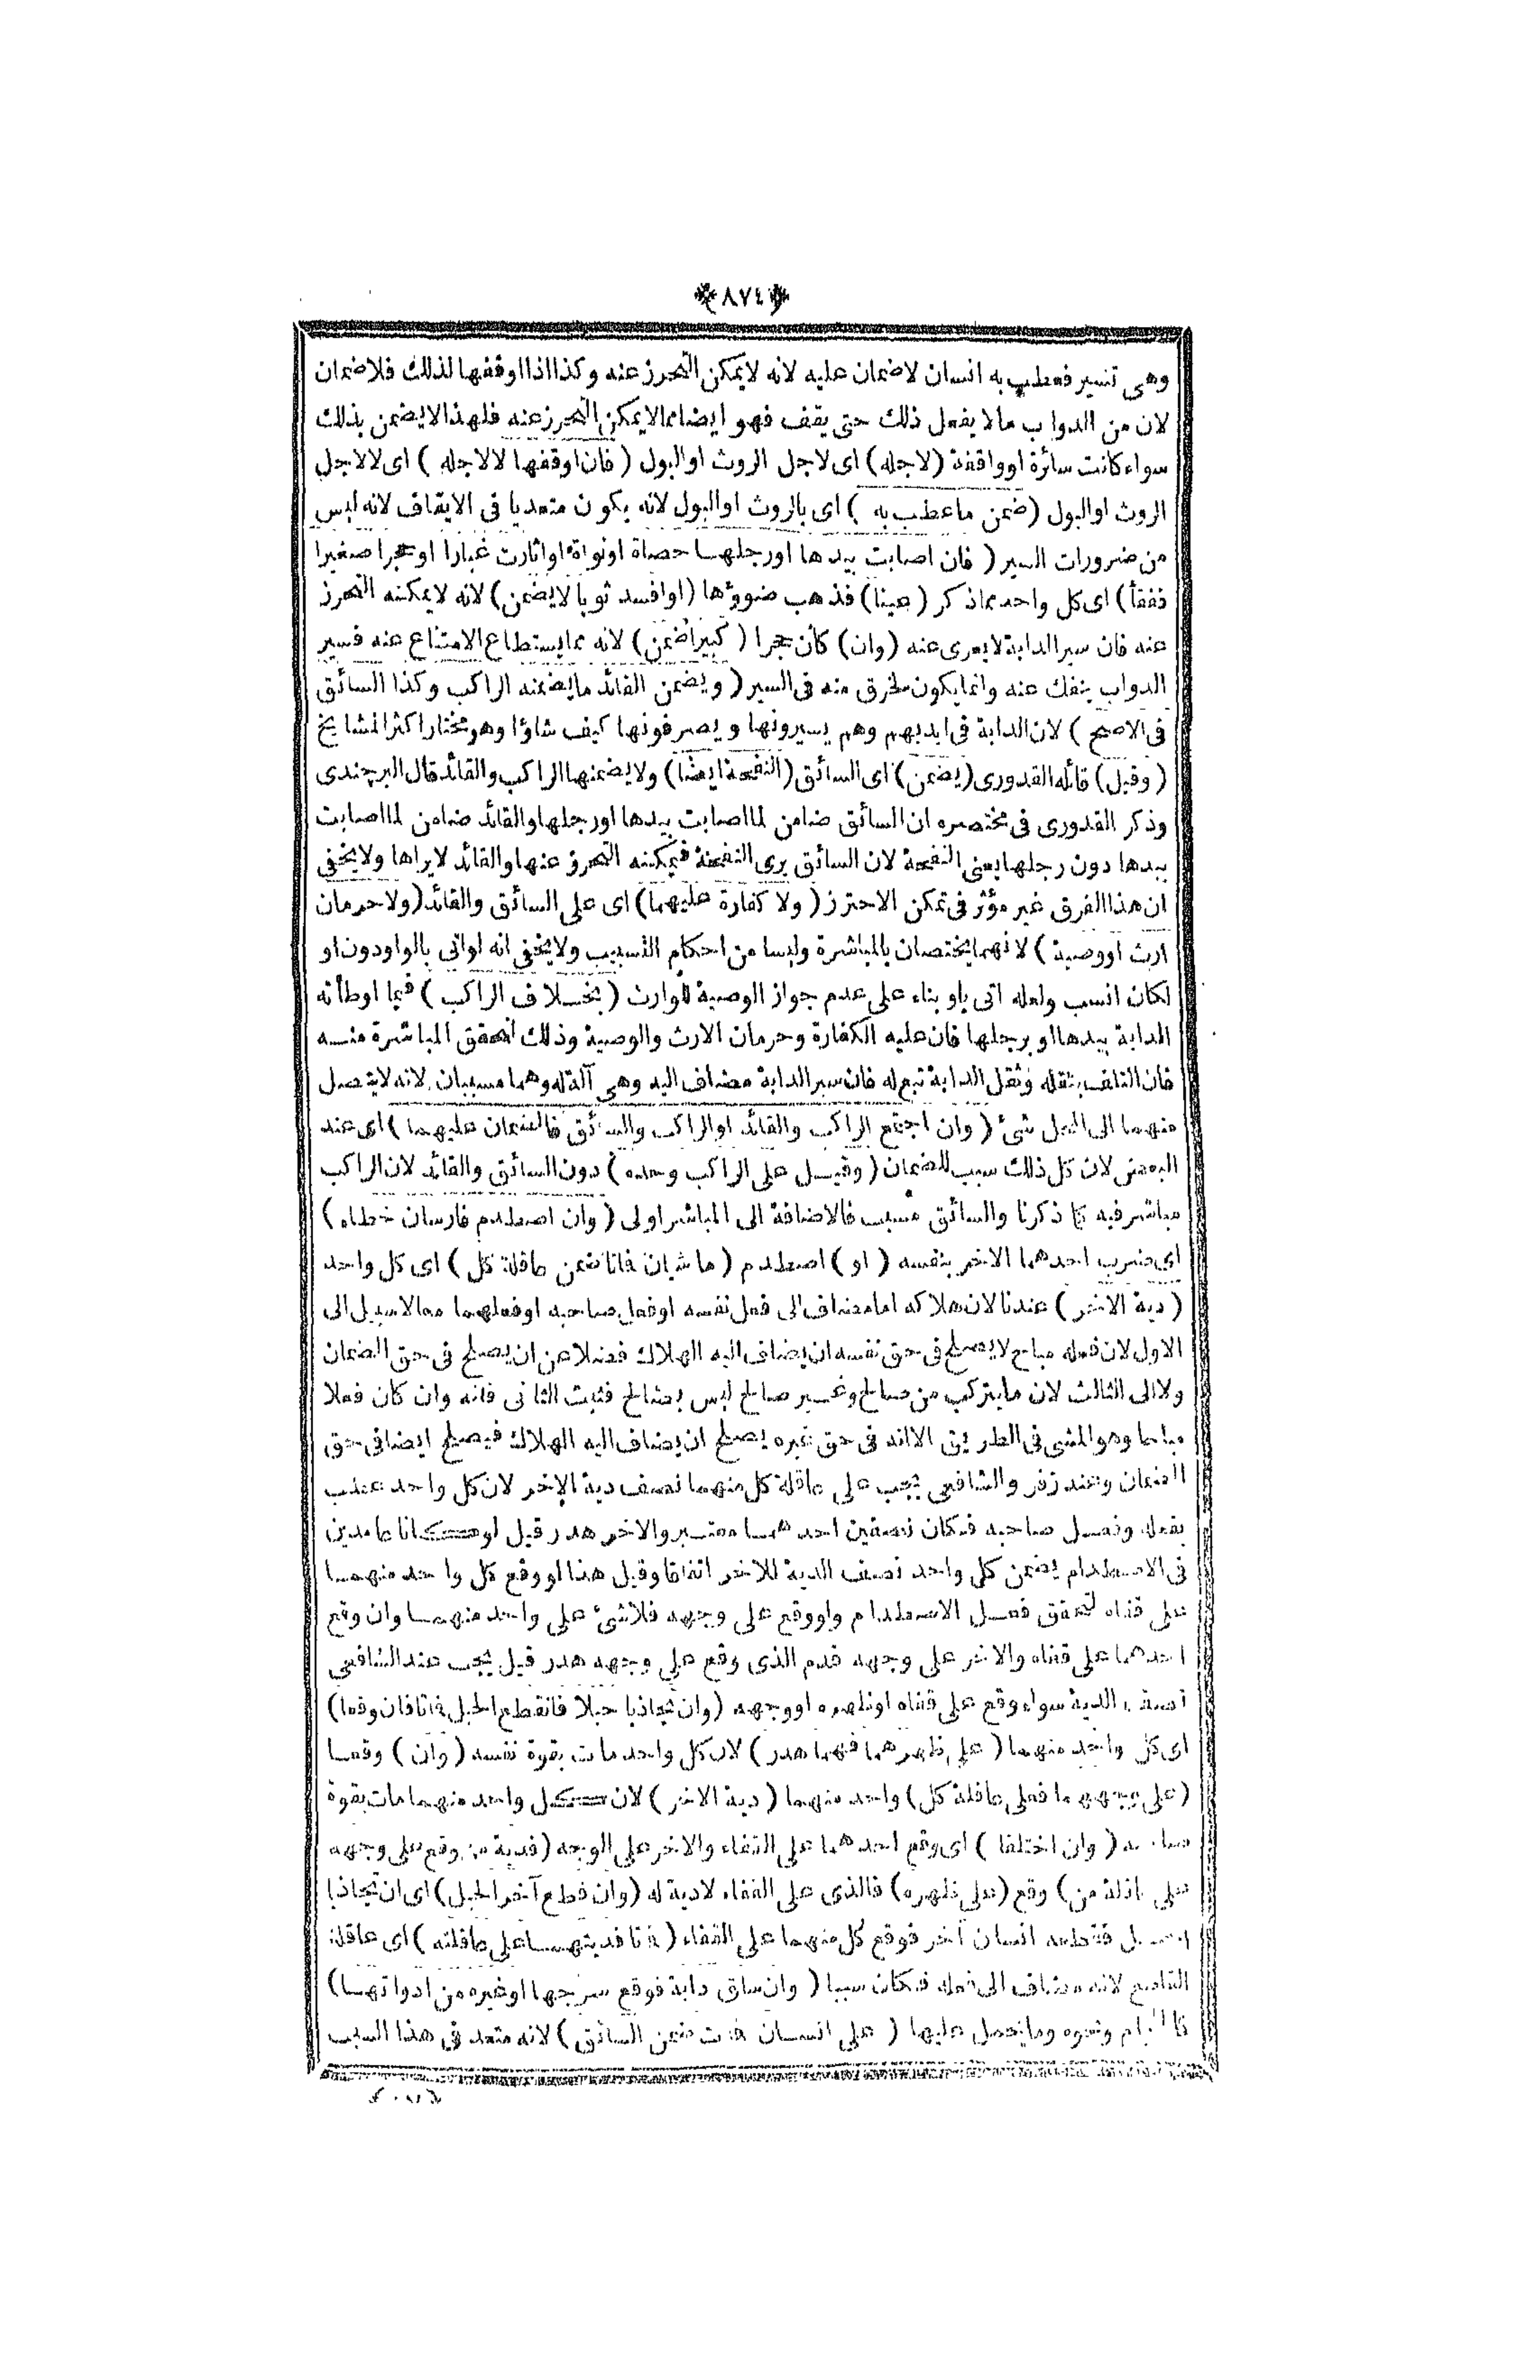 ﴿ ٨٧٤ ﴾
وهى تسير فعطب به انسان لاضمان عليه لانه لا يمكن التحرز عنه وكذا اذا اوقفها لذلك فلاضمان
لان من الدواب مالا يفعل ذلك حتى يقف فهو ايضا مما لايمكن التحرز عنه فلهذا لايضمن بذلك
سواء كانت سائرة اوواقفة (لاجله) اى لاجل الروث اوالبول (فان اوقفها لالاجله) اى لالاجل
الروث اوالبول (ضمن ماعطب به) اى بالروث اوالبول لانه يكون متعديا فى الايقاف لانه ليس
من ضرورات السير (فان اصابت بيدها اورجلها حصاة اونواة اواثارت غبارا اوحجرا صغيرا
ففقأ) اى كل واحد مماذكر (عينا) فذهب ضوؤها (اوافسد ثوبا لايضمن) لانه لا يمكنه التحرز
عنه فان سير الدابة لايعرى عنه (وان) كان حجرا (كبيرا ضمن) لانه مما يستطاع الامتناع عنه فسير
الدواب ينفك عنه وانما يكون لخرق منه فى السير (ويضمن القائد مايضمنه الراكب وكذا السائق
فى الاصح) لان الدابة فى ايديهم وهم يسيرونها ويصرفونها كيف شاؤا وهو مختار اكثر المشايخ
(وقيل) قائله القدورى (يضمن) اى السائق (النفحة ايضا) ولايضمنها الراكب والقائد قال البرجندى
وذكر القدورى فى مختصره ان السائق ضامن لما اصابت بيدها اورجلها والقائد ضامن لما اصابت
بيدها دون رجلها يعنى النفحة لان السائق يرى النفحة فيمكنه التحرز عنها والقائد لايراها ولايخفى
ان هذا الفرق غير مؤثر فى تمكن الاحترز (ولا كفارة عليهما) اى على السائق والقائد (ولاحرمان
ارث اووصية) لانهما يختصان بالمباشرة وليسا من احكام التسبيب ولايخفى انه لواتى بالواو دون او
لكان انسب ولعله اتى باو بناء على عدم جواز الوصية للوارث (بخلاف الراكب) فيما اوطأته
الدابة بيدها او برجلها فان عليه الكفارة وحرمان الارث والوصية وذلك لتحقق المباشرة منه
فان التلف بثقله وثقل الدابة تبع له فان سير الدابة مضاف اليه وهى آلة له وهما مسببان لانه لايتصل
منهما الى المحل شئ (وان اجتمع الراكب والقائد اوالراكب والسائق فالضمان عليهما) اى عند
البعض لان كل ذلك سبب للضمان (وقيل على الراكب وحده) دون السائق والقائد لان الراكب
مباشر فيه كما ذكرنا والسائق مسبب فالاضافة الى المباشر اولى (وان اصطدم فارسان خطاء)
اى ضرب احدهما الاخر بنفسه (او) اصطدم (ماشيان فاتا ضمن عاقلة كل) اى كل واحد
(دية الاخر) عندنا لان هلاكه اما مضاف الى فعل نفسه اوفعل صاحبه اوفعلهما معا لاسبيل الى
الاول لان فعله مباح لايصلح فى حق نفسه ان يضاف اليه الهلاك فضلا عن ان يصلح فى حق الضمان
ولا الى الثالث لان مايتركب من صالح وغير صالح ليس بصالح فثبت الثانى فانه وان كان فعلا
مباحا وهو المشى فى الطريق الا انه فى حق غيره يصلح ان يضاف اليه الهلاك فيصلح ايضا فى حق
الضمان وعند زفر والشافعى يجب على عاقلة كل منهما نصف دية الاخر لان كل واحد عطب
بفعله وفعل صاحبه فكان نصفين احدهما معتبر والاخر هدر قيل لو كانا عامدين
فى الاصطدام يضمن كل واحد نصف الدية للاخر اتفاقا وقيل هذا لو وقع كل واحد منهما
على قفاه لتحقق فعل الاصطدام ولو وقع على وجهه فلاشئ على واحد منهما وان وقع
احدهما على قفاه والاخر على وجهه فدم الذى وقع على وجهه هدر قيل يجب عند الشافعى
نصف الدية سواء وقع على قفاه اوظهره اووجهه (وان تجاذبا حبلا فانقطع الحبل فاتا فان وقعا)
اى كل واحد منهما (على ظهرهما فهما هدر) لان كل واحد مات بقوة نفسه (وان) وقعا
(على وجههما فعلى عاقلة كل) واحد منهما (دية الاخر) لان كل واحد منهما مات بقوة
صاحبه (وان اختلفا) اى وقع احدهما على القفاء والاخر على الوجه (فدية من وقع على وجهه
على عاقلة من) وقع (على ظهره) فالذى على القفاء لادية له (وان قطع آخر الحبل) اى ان تجاذبا
فقطعه انسان آخر فوقع كل منهما على القفاء (فاتا فديتهما على عاقلته) اى عاقلة
القاطع لانه مضاف الى فعله فكان سببا (وان ساق دابة فوقع سرجها اوغيره من ادواتها)
كاللجام ونحوه ومايحمل عليها (على انسان فات ضمن السائق) لانه متعد فى هذا السبب